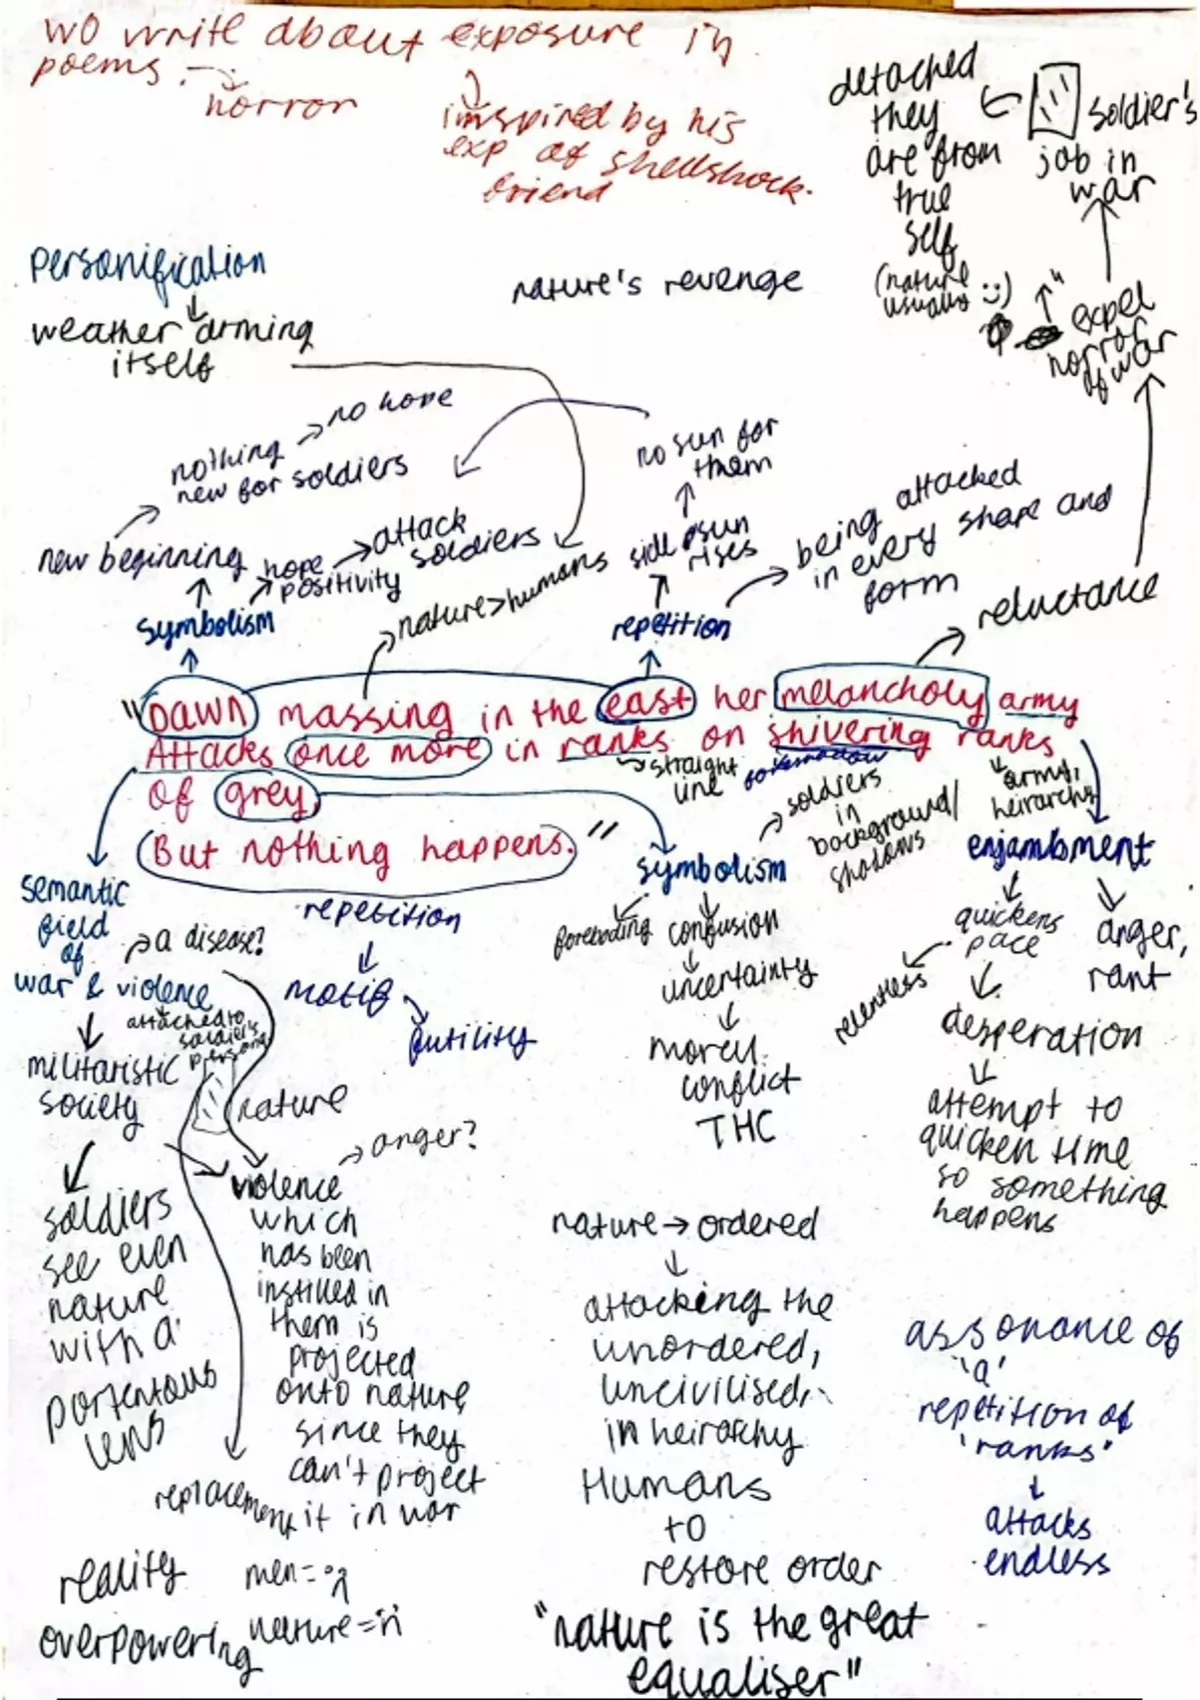 WO write about exposure in
poems.
horror
inspired by his
exp of shellshock.
friend
detached
they
are from
true
self
(nature
usually :))
soldier's
job in
war
expel
horror
of war
personification
weather arming
itself
nature's revenge
nothing
new for soldiers
no hope
no sun for
them
new beginning
hope
positivity
attack
soldiers
symbolism
nature>humans
side sun
rises
repetition
being attacked
in every shape and
form
reluctance
"Dawn massing in the east her melancholy army
Attacks once more in ranks on shivering ranks
of grey,
But nothing happens."
straight
line
soldiers
in
background/
shadows
army,
heirarchy
symbolism
enjambment
foreboding
confusion
uncertainty
moral
conflict
THC
quickens
pace
relentless
desperation
attempt to
quicken time
so something
happens
anger,
rant
semantic
field
of
war & violence
a disease?
attached to
soldier's
persona
militaristic
society
nature
repetition
motif
futility
soldiers
see even
nature
with a
portentous
lens
anger?
violence
which
has been
instilled in
them is
projected
onto nature
since they
can't project
it in war
replacement
reality
overpowering
men=
nature=
nature → ordered
attacking the
unordered,
uncivilised,
in heirarchy
Humans
to
restore order
"nature is the great
equaliser"
assonance of
'a'
repetition of
'ranks"
attacks
endless